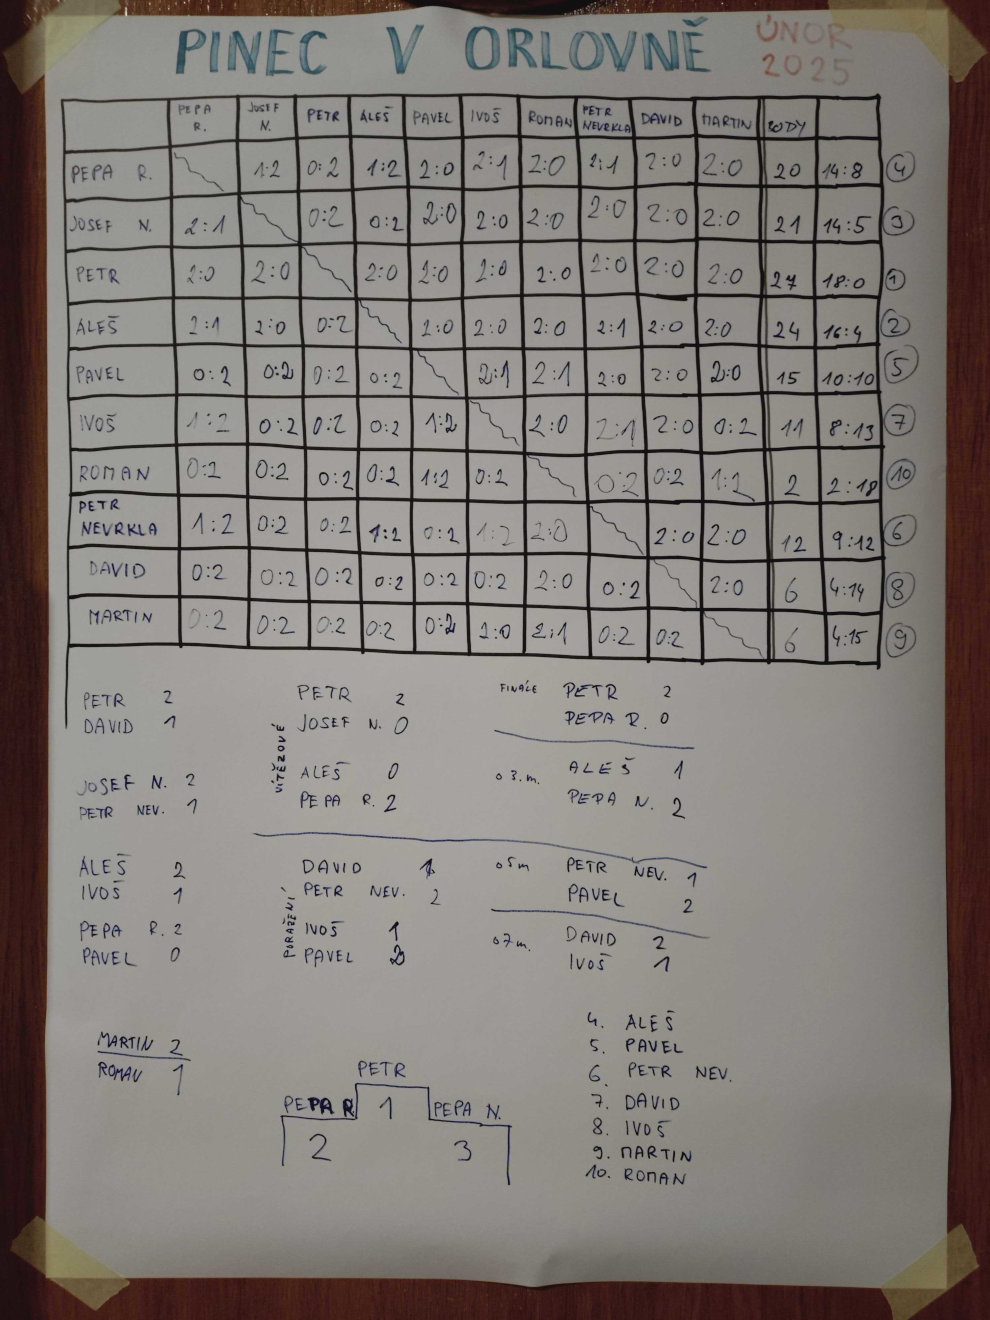 PINEC V ORLOVNĚ
ÚNOR
2025
PEPA R. JOSEF N. PETR ALEŠ PAVEL IVOŠ ROMAN PETR NEVRKLA DAVID MARTIN BODY
PEPA R. 1:2 0:2 1:2 2:0 2:1 2:0 2:1 2:0 2:0 20 14:8 4
JOSEF N. 2:1 0:2 0:2 2:0 2:0 2:0 2:0 2:0 2:0 21 14:5 3
PETR 2:0 2:0 2:0 2:0 2:0 2:0 2:0 2:0 2:0 27 18:0 1
ALEŠ 2:1 2:0 0:2 2:0 2:0 2:0 2:1 2:0 2:0 24 16:4 2
PAVEL 0:2 0:2 0:2 0:2 2:1 2:1 2:0 2:0 2:0 15 10:10 5
IVOŠ 1:2 0:2 0:2 0:2 1:2 2:0 2:1 2:0 0:2 11 8:13 7
ROMAN 0:2 0:2 0:2 0:2 1:2 0:2 0:2 0:2 1:2 2 2:18 10
PETR NEVRKLA 1:2 0:2 0:2 1:2 0:2 1:2 2:0 2:0 2:0 12 9:12 6
DAVID 0:2 0:2 0:2 0:2 0:2 0:2 2:0 0:2 2:0 6 4:14 8
MARTIN 0:2 0:2 0:2 0:2 0:2 2:0 2:1 0:2 0:2 6 4:15 9
PETR 2
DAVID 1
JOSEF N. 2
PETR NEV. 1
ALEŠ 2
IVOŠ 1
PEPA R. 2
PAVEL 0
MARTIN 2
ROMAN 1
VÍTĚZOVÉ
PETR 2
JOSEF N. 0
ALEŠ 0
PEPA R. 2
PORAŽENÍ
DAVID 1
PETR NEV. 2
IVOŠ 1
PAVEL 2
FINÁLE PETR 2
PEPA R. 0
o 3.m. ALEŠ 1
PEPA N. 2
o 5m PETR NEV. 1
PAVEL 2
o 7m. DAVID 2
IVOŠ 1
PETR
PEPA R 1 PEPA N.
2 3
4. ALEŠ
5. PAVEL
6. PETR NEV.
7. DAVID
8. IVOŠ
9. MARTIN
10. ROMAN